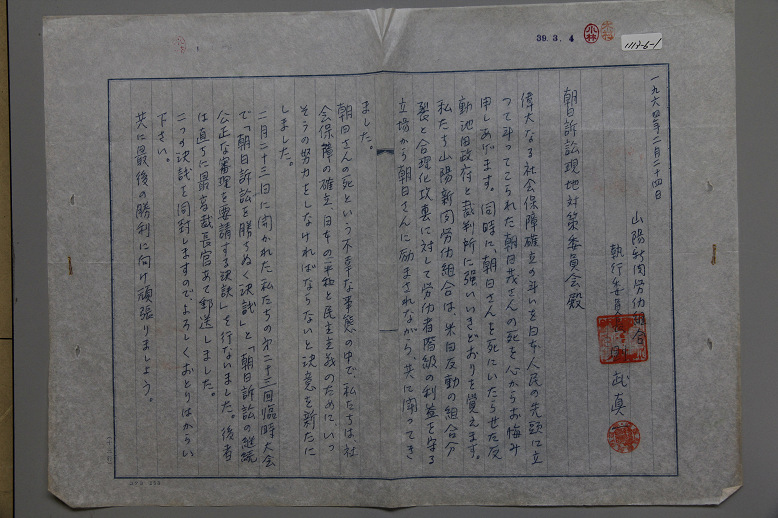 39.3.4
小林
1113-6-1
一九六四年二月二十四日
山陽新聞労仂組合
執行委員長 則武真
朝日訴訟現地対策委員会殿
偉大なる社会保障確立の斗いを日本人民の先頭に立
つて斗ってこられた朝日茂さんの死を心からお悔み
申しあげます。同時に、朝日さんを死にいたらせた反
動池田政府と裁判所に強いいきどおりを覚えます。
私たち山陽新聞労仂組合は、米日反動の組合分
裂と合理化攻勢に対して労仂者階級の利益を守る
立場から朝日さんに励まされながら、共に闘ってき
ました。
朝日さんの死という不幸な事態の中で、私たちは社
会保障の確立、日本の平和と民主主義のためにいっ
そうの努力をしなければならないと決意を新たに
しました。
二月二十三日に開かれた私たちの第二十三回臨時大会
で「朝日訴訟を勝ちぬく決議」と「朝日訴訟の継続
公正な審理を要請する決議」を行ないました。後者
は直ちに最高裁長官あて郵送しました。
二つの決議を同封しますのでよろしくおとりはからい
下さい。
共に最後の勝利に向け頑張りましょう。